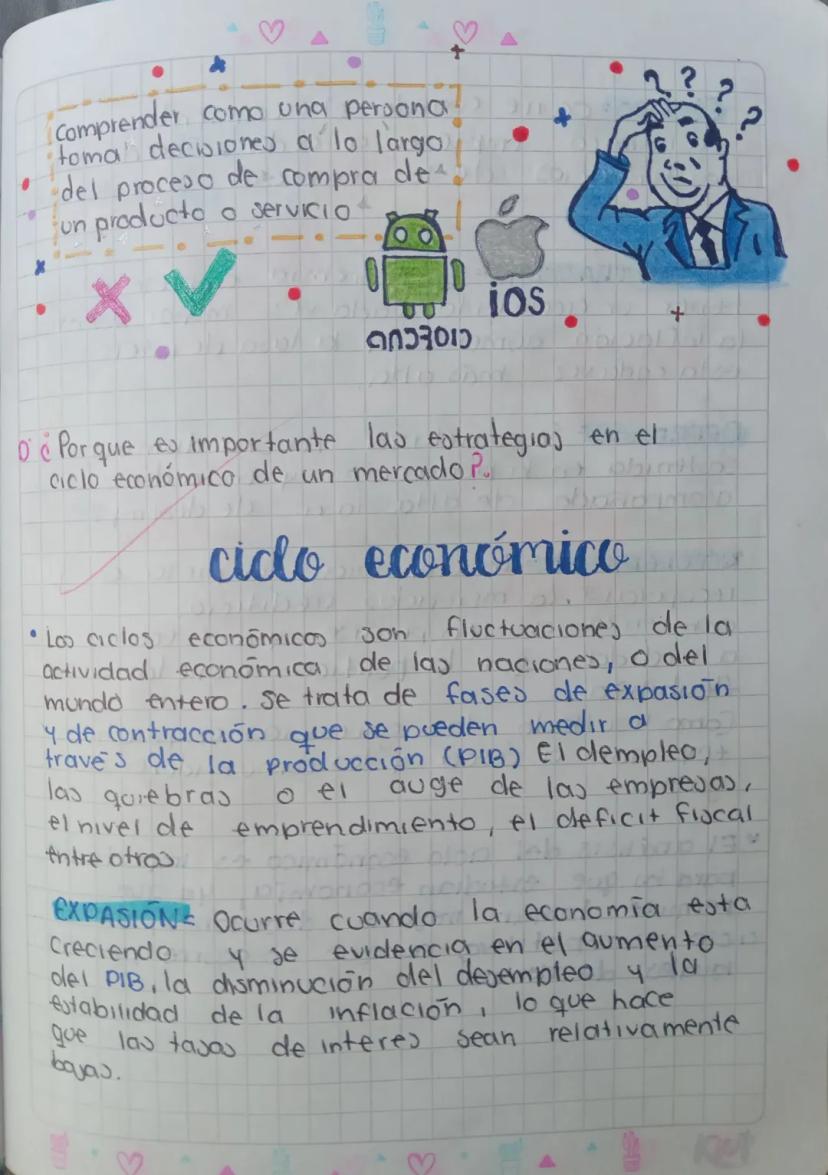 comprender como una persona
toma decisiones a lo largo
del proceso de compra de
un producto o servicio
? ? ? ?
iOS
ANDROID
¿Porque es importante las estrategias en el
ciclo económico de un mercado?
ciclo económico
• Los ciclos económicos son fluctuaciones de la
actividad económica de las naciones, o del
mundo entero. se trata de fases de expasión
y de contracción que se pueden medir a
través de la producción (PIB) El dempleo,
las quiebras o el auge de las empresas,
el nivel de emprendimiento, el deficit fiscal
entre otros
EXPASIÓN= Ocurre cuando la economía esta
creciendo y se evidencia en el aumento
del PIB, la disminución del desempleo y la
estabilidad de la inflación, lo que hace
que las tasas de interes sean relativamente
bajas.